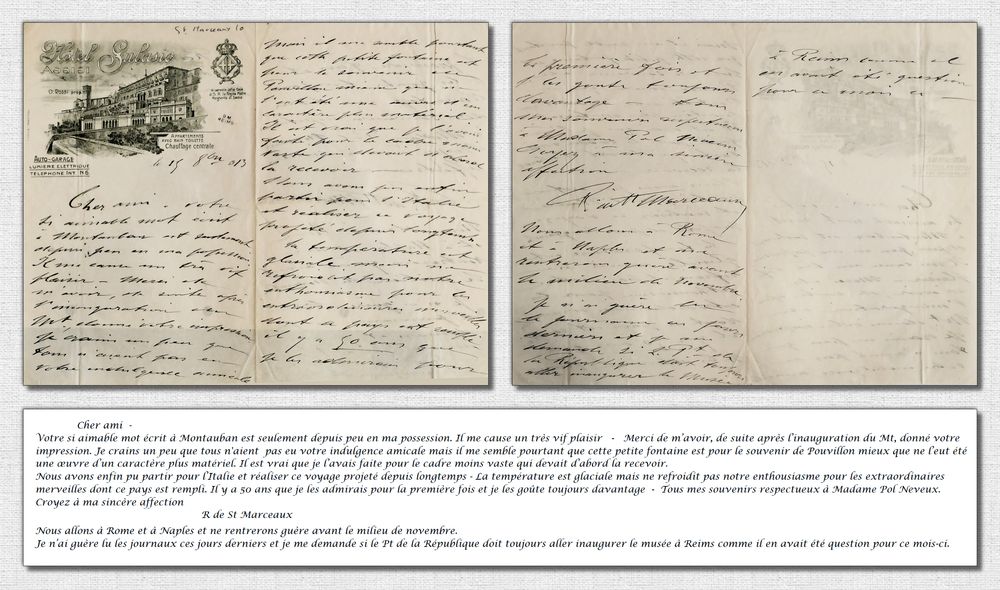 St Marceaux 10
Hôtel Subasio
Assisi
O. Rossi prop.
Appartements
avec bain-toilette
Chauffage centrale
Auto-Garage
Lumière Elettrique
Telephone Int N.6
le 15 8bre 913
Cher ami - votre
si aimable mot écrit
à Montauban est seulement
depuis peu en ma possession
Il me cause un très vif
plaisir - Merci de
m'avoir, de suite après
l'inauguration du
Mt, donné votre impression
Je crains un peu que
tous n'aient pas eu
votre indulgence amicale
mais il me semble pourtant
que cette petite fontaine est
pour le souvenir de
Pouvillon mieux que ne
l'eut été une œuvre d'un
caractère plus matériel.
Il est vrai que je l'avais
faite pour le cadre moins
vaste qui devait d'abord
la recevoir -
Nous avons pu enfin
partir pour l'Italie
et réaliser ce voyage
projeté depuis longtemps -
la température est
glaciale mais ne
refroidit pas notre
enthousiasme pour les
extraordinaires merveilles
dont ce pays est rempli
il y a 50 ans que
je les admirais pour
la première fois et
je les goute toujours
davantage - Tous
mes souvenirs respectueux
à Madame Pol Neveux
Croyez à ma sincère
affection
R de St Marceaux
Nous allons à Rome
et à Naples et ne
rentrerons guère avant
le milieu de Novembre
Je n'ai guère lu
les journaux ces jours
derniers et je me
demande si le Pt de
la République doit toujours
aller inaugurer le Musée
à Reims comme il
en avait été question
pour ce mois ci -
Cher ami -
Votre si aimable mot écrit à Montauban est seulement depuis peu en ma possession. Il me cause un très vif plaisir - Merci de m'avoir, de suite après l'inauguration du Mt, donné votre
impression. Je crains un peu que tous n'aient pas eu votre indulgence amicale mais il me semble pourtant que cette petite fontaine est pour le souvenir de Pouvillon mieux que ne l'eut été
une œuvre d'un caractère plus matériel. Il est vrai que je l'avais faite pour le cadre moins vaste qui devait d'abord la recevoir.
Nous avons enfin pu partir pour l'Italie et réaliser ce voyage projeté depuis longtemps - La température est glaciale mais ne refroidit pas notre enthousiasme pour les extraordinaires
merveilles dont ce pays est rempli. Il y a 50 ans que je les admirais pour la première fois et je les goûte toujours davantage - Tous mes souvenirs respectueux à Madame Pol Neveux.
Croyez à ma sincère affection
R de St Marceaux
Nous allons à Rome et à Naples et ne rentrerons guère avant le milieu de novembre.
Je n'ai guère lu les journaux ces jours derniers et je me demande si le Pt de la République doit toujours aller inaugurer le musée à Reims comme il en avait été question pour ce mois-ci.